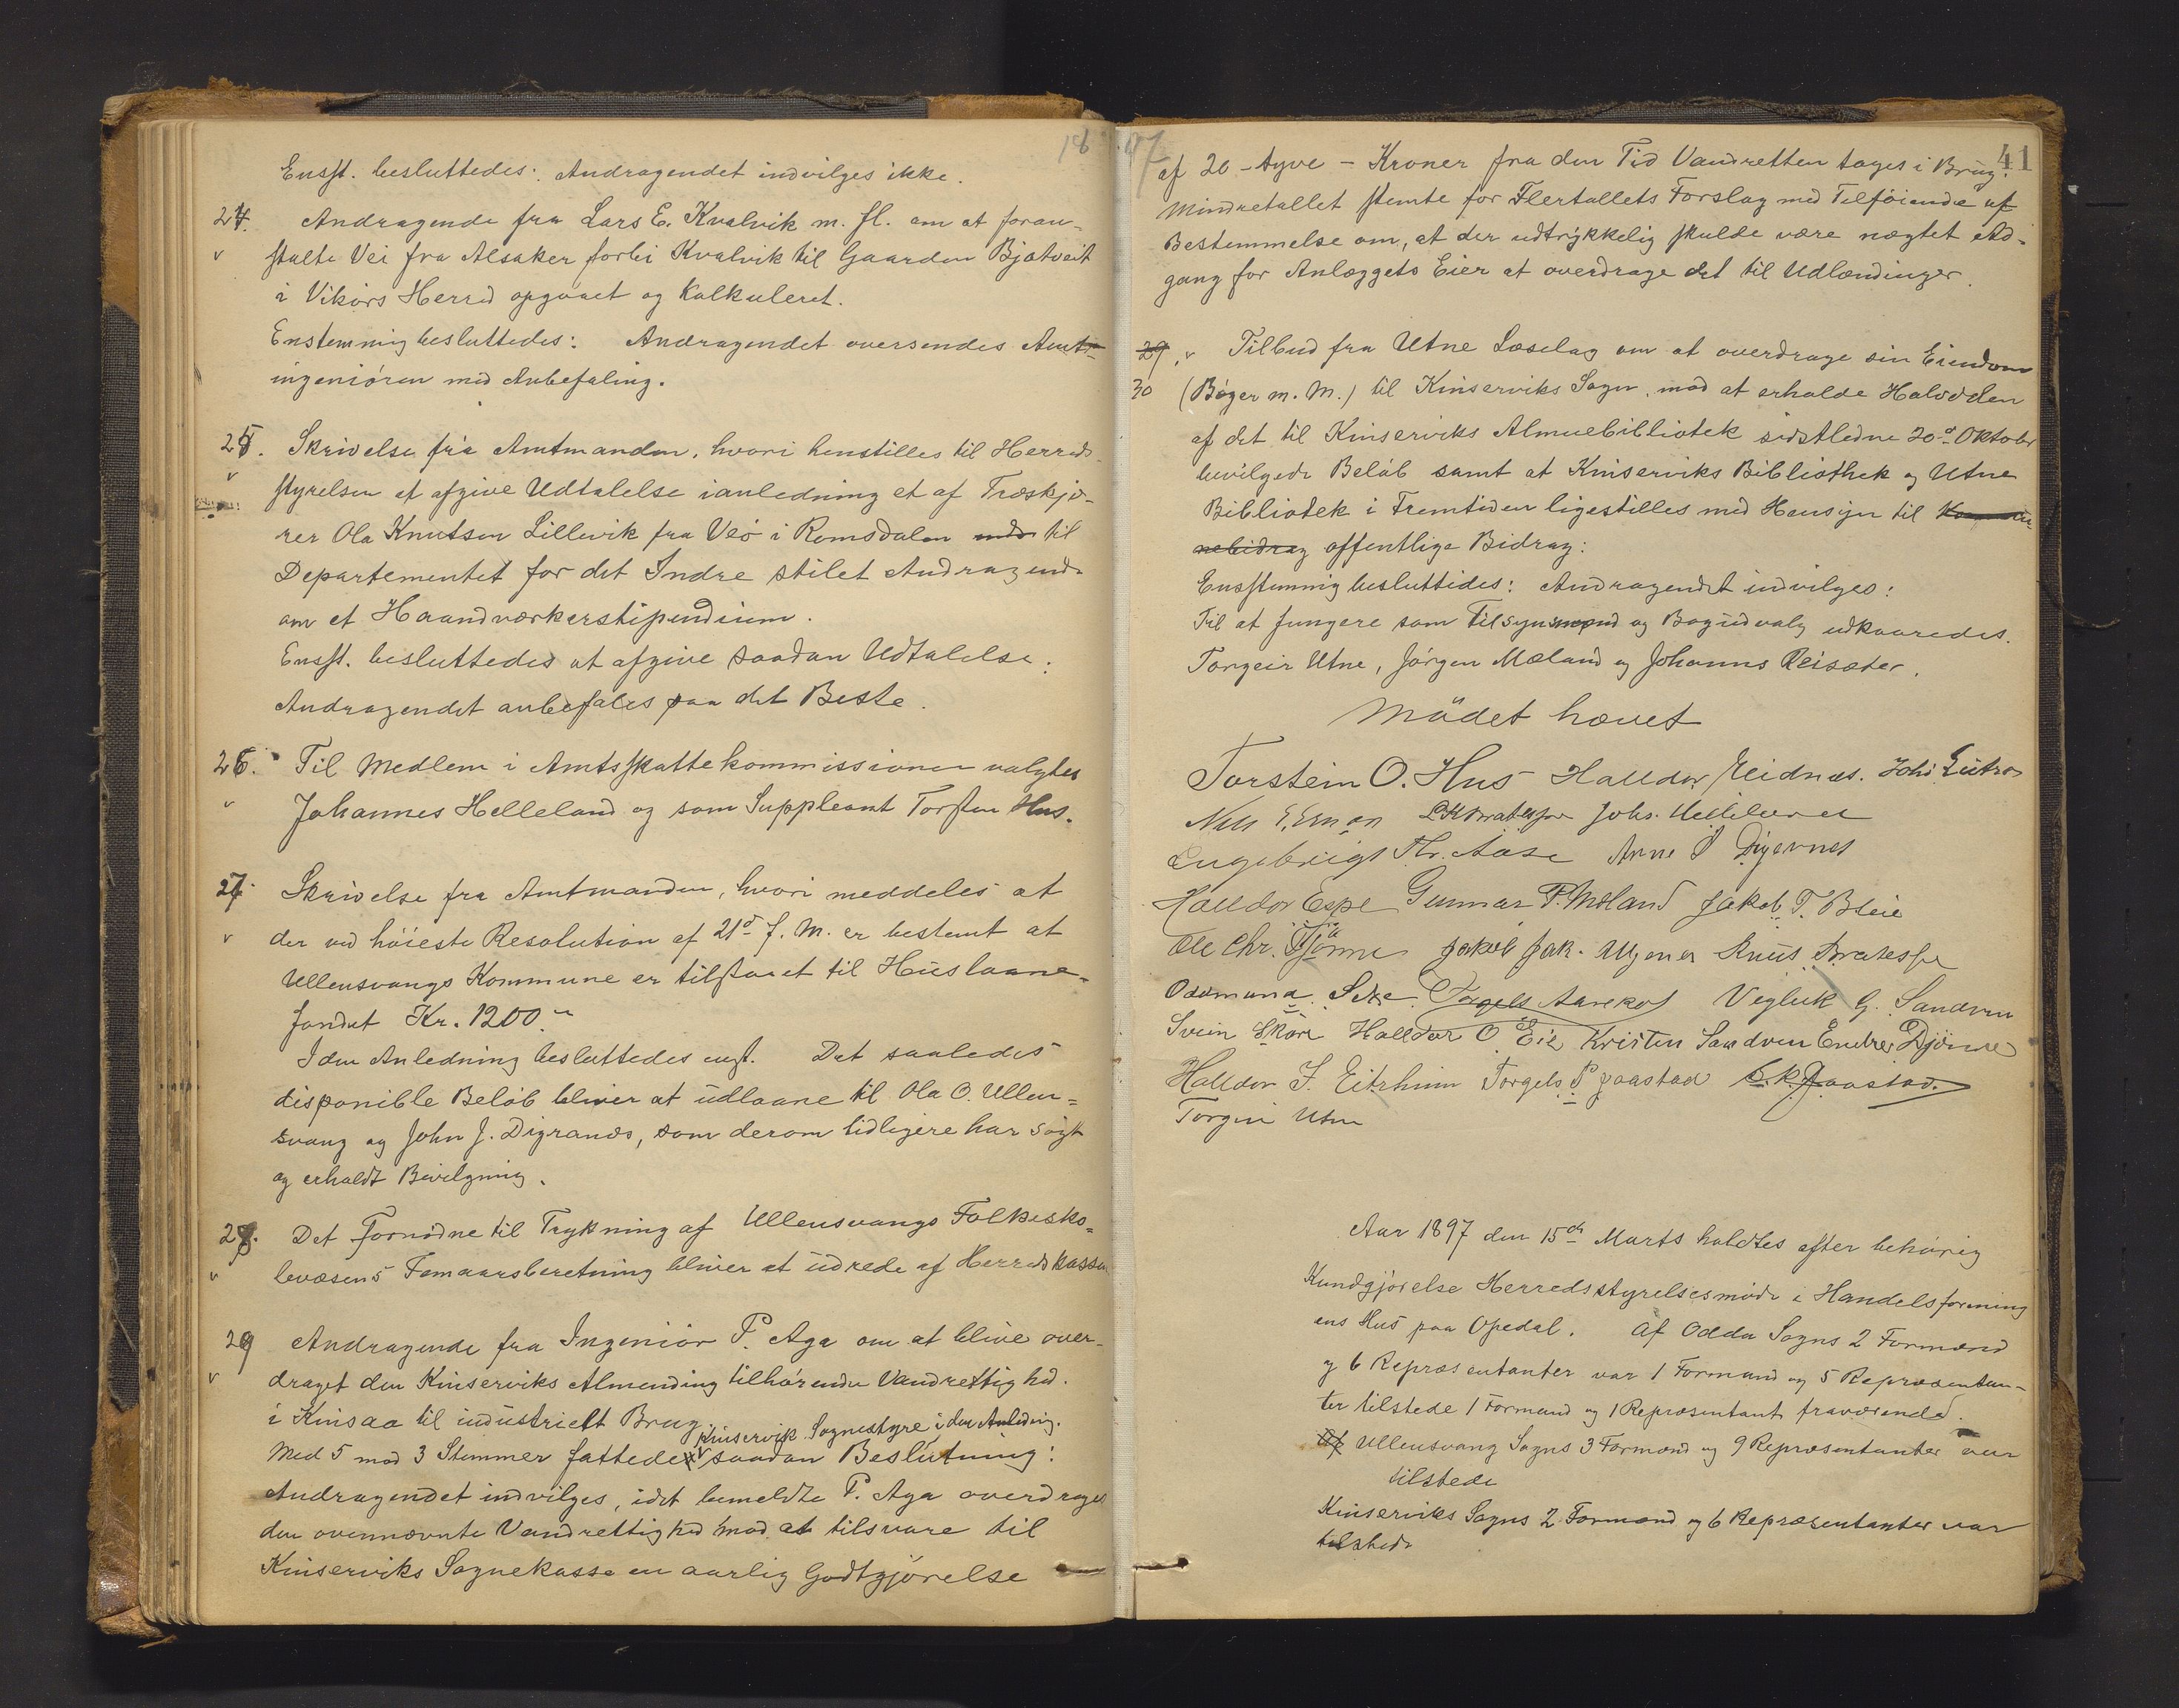 18
Enst. besluttedes: Andragendet indvilges ikke.
24. Andragende fra Lars E. Kvalvik m. fl. om at foran-
v stalte Vei fra Alsaker forbi Kvalvik til Gaarden Bjotveit
i Vikørs Herred opgaaet og kalkuleret.
Enstemmig besluttedes: Andragendet oversendes Amts-
ingeniøren med Anbefaling.
25. Skrivelse fra Amtmanden, hvori henstilles til Herreds-
v styrelsen at afgive Udtalelse ianledning et af Træskjæ-
rer Ola Knutsen Lillevik fra Veø i Romsdalen til
Departementet for det Indre stilet Andragende
om et Haandværkerstipendium.
Enst. besluttedes at afgive saadan Udtalelse:
Andragendet anbefales paa det Beste.
26. Til Medlem i Amtsskattekommissionen valgtes
v Johannes Helleland og som Suppleant Torsten Hus.
27. Skrivelse fra Amtmanden, hvori meddeles at
v der ved høieste Resolution af 21de f. M. er bestemt at
Ullensvangs Kommune er tilstaaet til Huslaane-
fondet Kr. 1200.-
I den Anledning besluttedes enst. Det saaledes
disponible Beløb bliver at udlaane til Ola O. Ullen-
svang og John J. Digranes, som derom tidligere har søgt
og erholdt Bevilgning.
28. Det Fornødne til Trykning af Ullensvangs Folkesko-
v levæsens Femaarsberetning bliver at udrede af Herredskassen
29 Andragende fra Ingeniør P. Aga om at blive over-
v draget den Kinserviks Almending tilhørende Vandrettighed
i Kinsaa til industrielt Brug.
Kinservik Sognestyre i den Anledning.
Med 5 mod 3 Stemmer fattedes saadan Beslutning:
Andragendet indvilges, idet bemeldte P. Aga overdrages
den ovennævnte Vandrettighed mod at tilsvare til
Kinserviks Sognekasse en aarlig Godtgjørelse
97
41
af 20 - tyve - Kroner fra den Tid Vandretten tages i Brug.
Mindretallet stemte for Flertallets Forslag med Tilføiende af
Bestemmelse om, at der udtrykkelig skulde være nægtet Ad-
gang for Anlæggets Eier at overdrage det til Udlændinger.
29. v Tilbud fra Utne Læselag om at overdrage sin Eiendom
30 (Bøger m. M.) til Kinserviks Sogn, mod at erholde Halvdelen
af det til Kinserviks Almuebibliotek sidstledne 20de Oktober
bevilgede Beløb samt at Kinserviks Bibliothek og Utne
Bibliotek i Fremtiden ligestilles med Hensyn til Kommu
nebidrag offentlige Bidrag:
Enstemmig besluttides: Andragendet indvilges:
Til at fungere som Tilsynsmænd og Bogudvalg udkaaredes.
Torgeir Utne, Jørgen Mæland og Johannes Reisæter.
Mødet hævet
Torstein O. Hus Halldor Eidnæs. Johs
Nils
Engebrigt Th. Aase Arne
Halldor Espe Gunnar P. Mæland Jakob T. Bleie
Ole Chr. Jakob Jak. Knut Bratespe
Oddmund Sexe Torgels Aarekol Vigleik G. Sandven
Svein Skare Halldor O Eie Kristen Sandven Endre Djønne
Halldor J. Eitrheim Torgels P Jaastad K. Jaastad.
Torgeir Utne
Aar 1897 den 15de Marts holdtes efter behørig
Kundgjørelse Herredsstyrelsesmøde i Handelsforening
ens Hus paa Opedal. Af Odda Sogns 2 Formænd
og 6 Repræsentanter var 1 Formand og 5 Repræsentan-
ter tilstede 1 Formand og 1 Repræsentant fraværende.
Af Ullensvang Sogns 3 Formænd og 9 Repræsentanter var
tilstede
Kinserviks Sogns 2 Formænd og 6 Repræsentanter var
tilstede